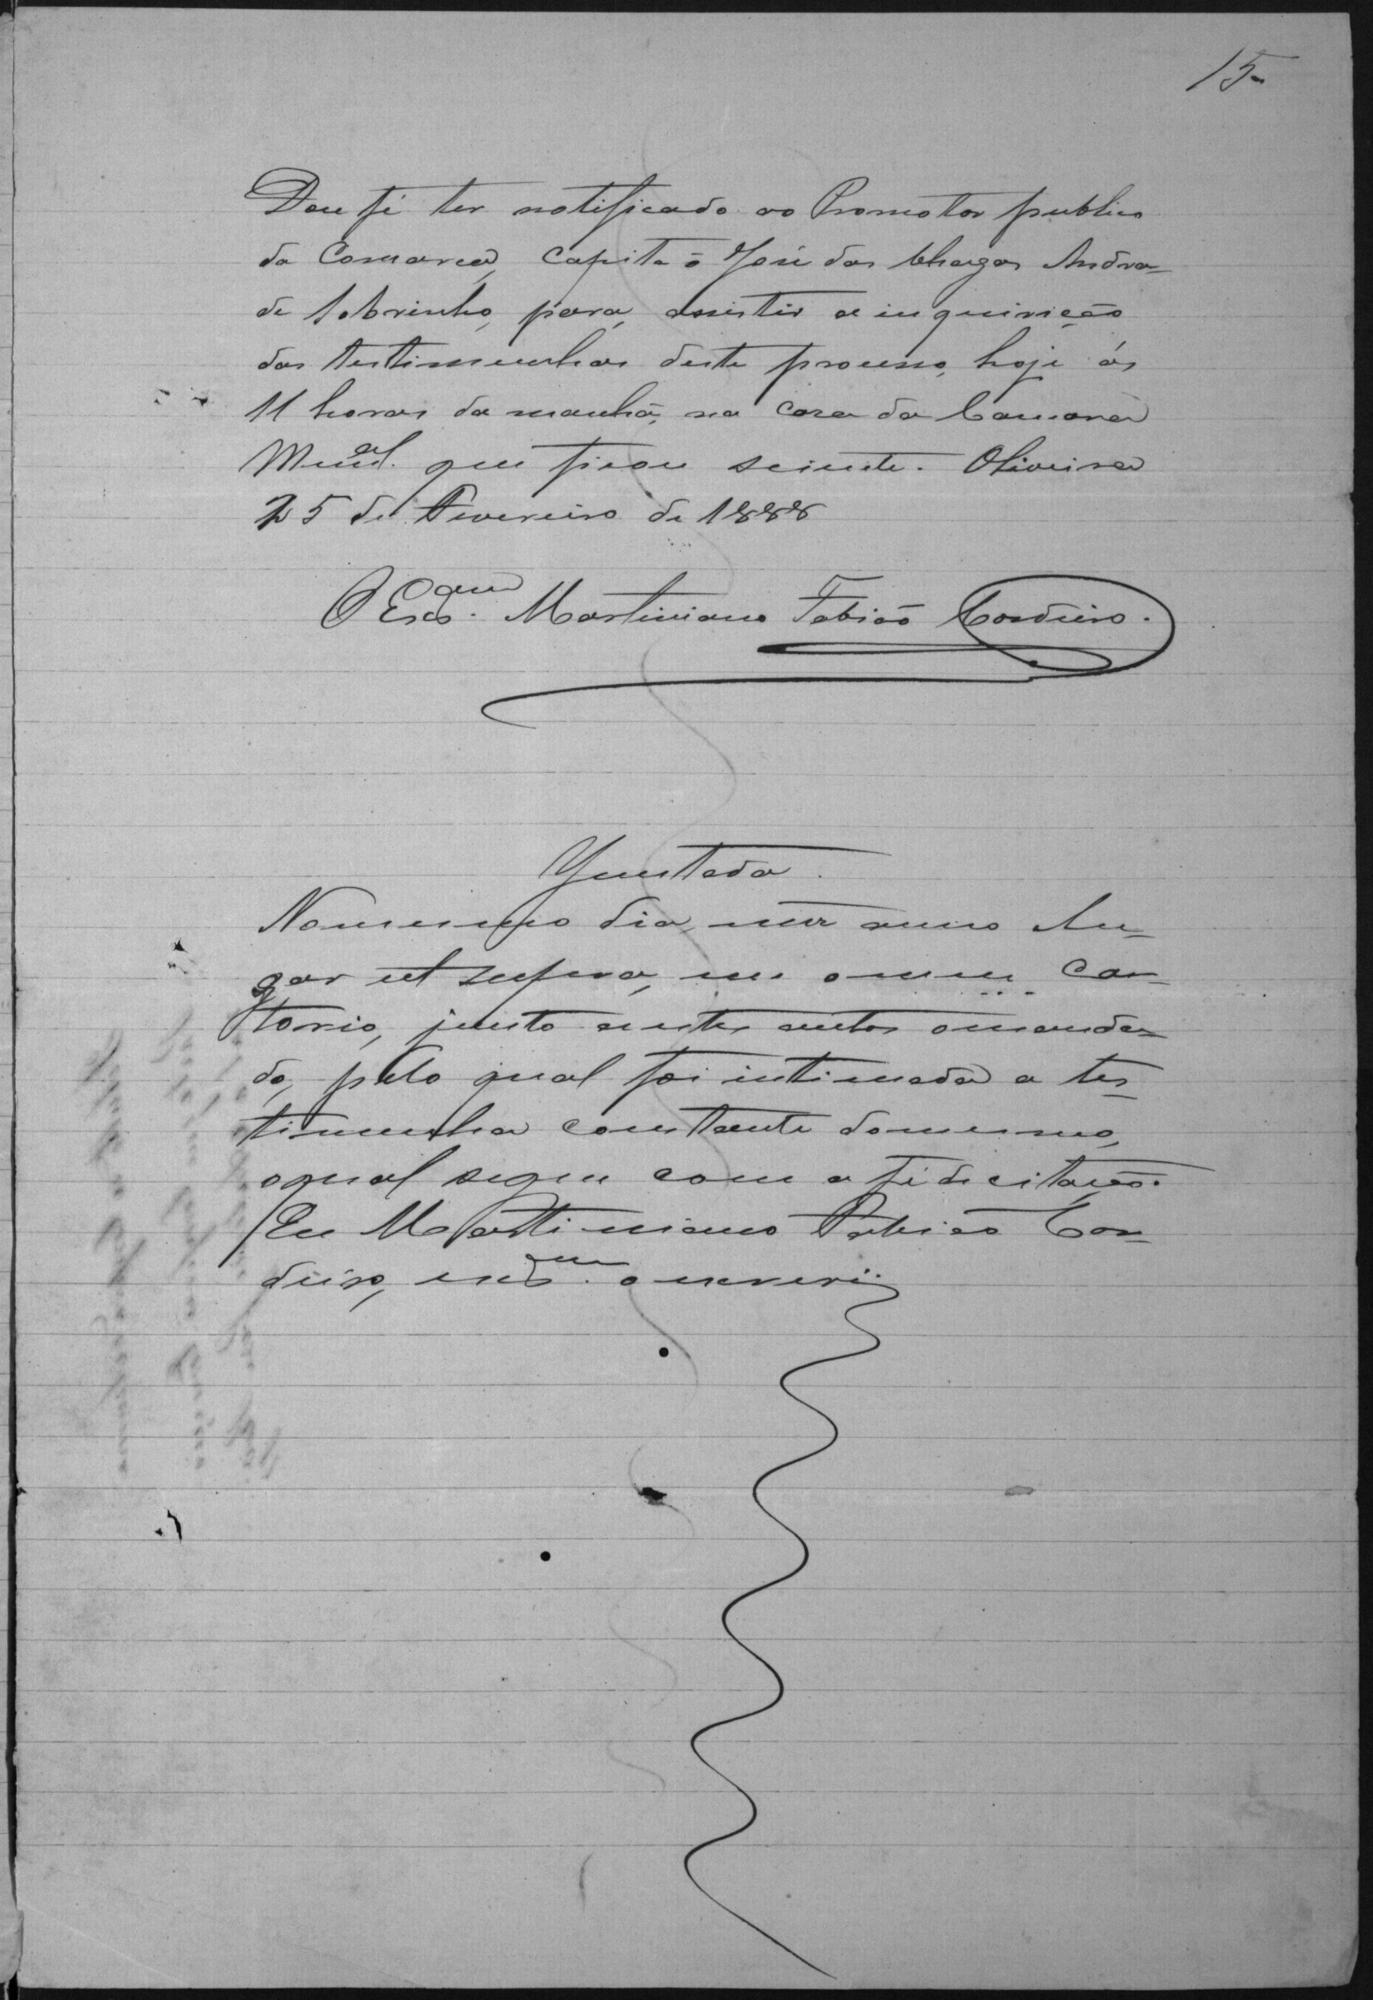 15
Dou fé ter notificado ao Promotor publico
da Comarca, capitaõ José das Chagas Andra-
de Sobrinho, para assistir a inquirição
das testimunhas deste processo, hoje ás
11 horas da manhã, na casa da Camara
Mun.al que ficou sciente. Oliveira
25 de Fevereiro de 1888
O Escr.am Martiniano Fabião Cordeiro.
Juntada.
No mesmo dia, mez anno lu-
gar ut supra, em o meu car-
torio, junto a estes autos o manda-
do, pelo qual foi intimada a tes-
timunha constante do mesmo,
o qual segue com a fé de citação.
Eu Martiniano Fabião Cor-
deiro, escr.am o escrevi.